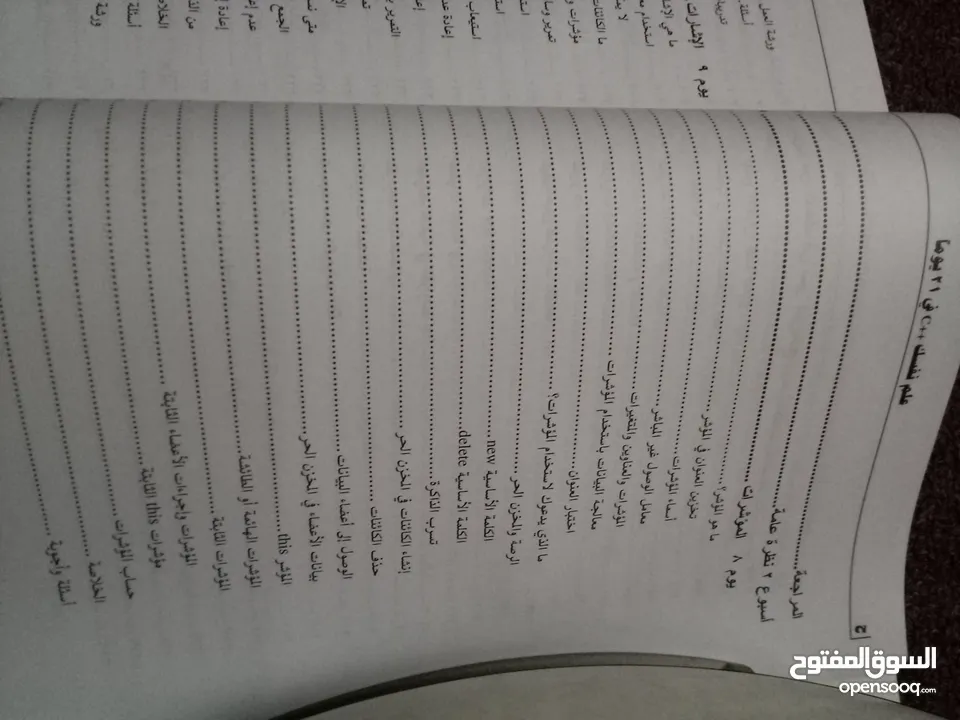 علم نفسك C++ في ٢١ يوما
ج
المراجعة
أسبوع ٢ نظرة عامة
يوم ٨ المؤشرات
ما هو المؤشر؟
تخزين العنوان في المؤشر
أسماء المؤشرات
معامل الوصول غير المباشر
المؤشرات والعناوين والمتغيرات
معالجة البيانات باستخدام المؤشرات
اختبار العنوان
ما الذي يدعوك لاستخدام المؤشرات؟
الرصة والمخزن الحر
الكلمة الأساسية new
الكلمة الأساسية delete
تسرب الذاكرة
إنشاء الكائنات في المخزن الحر
حذف الكائنات
الوصول إلى أعضاء البيانات
بيانات الأعضاء في المخزن الحر
المؤشر this
المؤشرات الهائمة أو الطائشة
المؤشرات الثابتة
المؤشرات وإجراءات الأعضاء الثابتة
مؤشرات this الثابتة
حساب المؤشرات
الخلاصة
أسئلة وأجوبة
ورشة العمل
أسئلة
يوم ٩ الإشارات
ما هي
استخدام
ما الكائنات
السوق المفتوح
opensooq.com